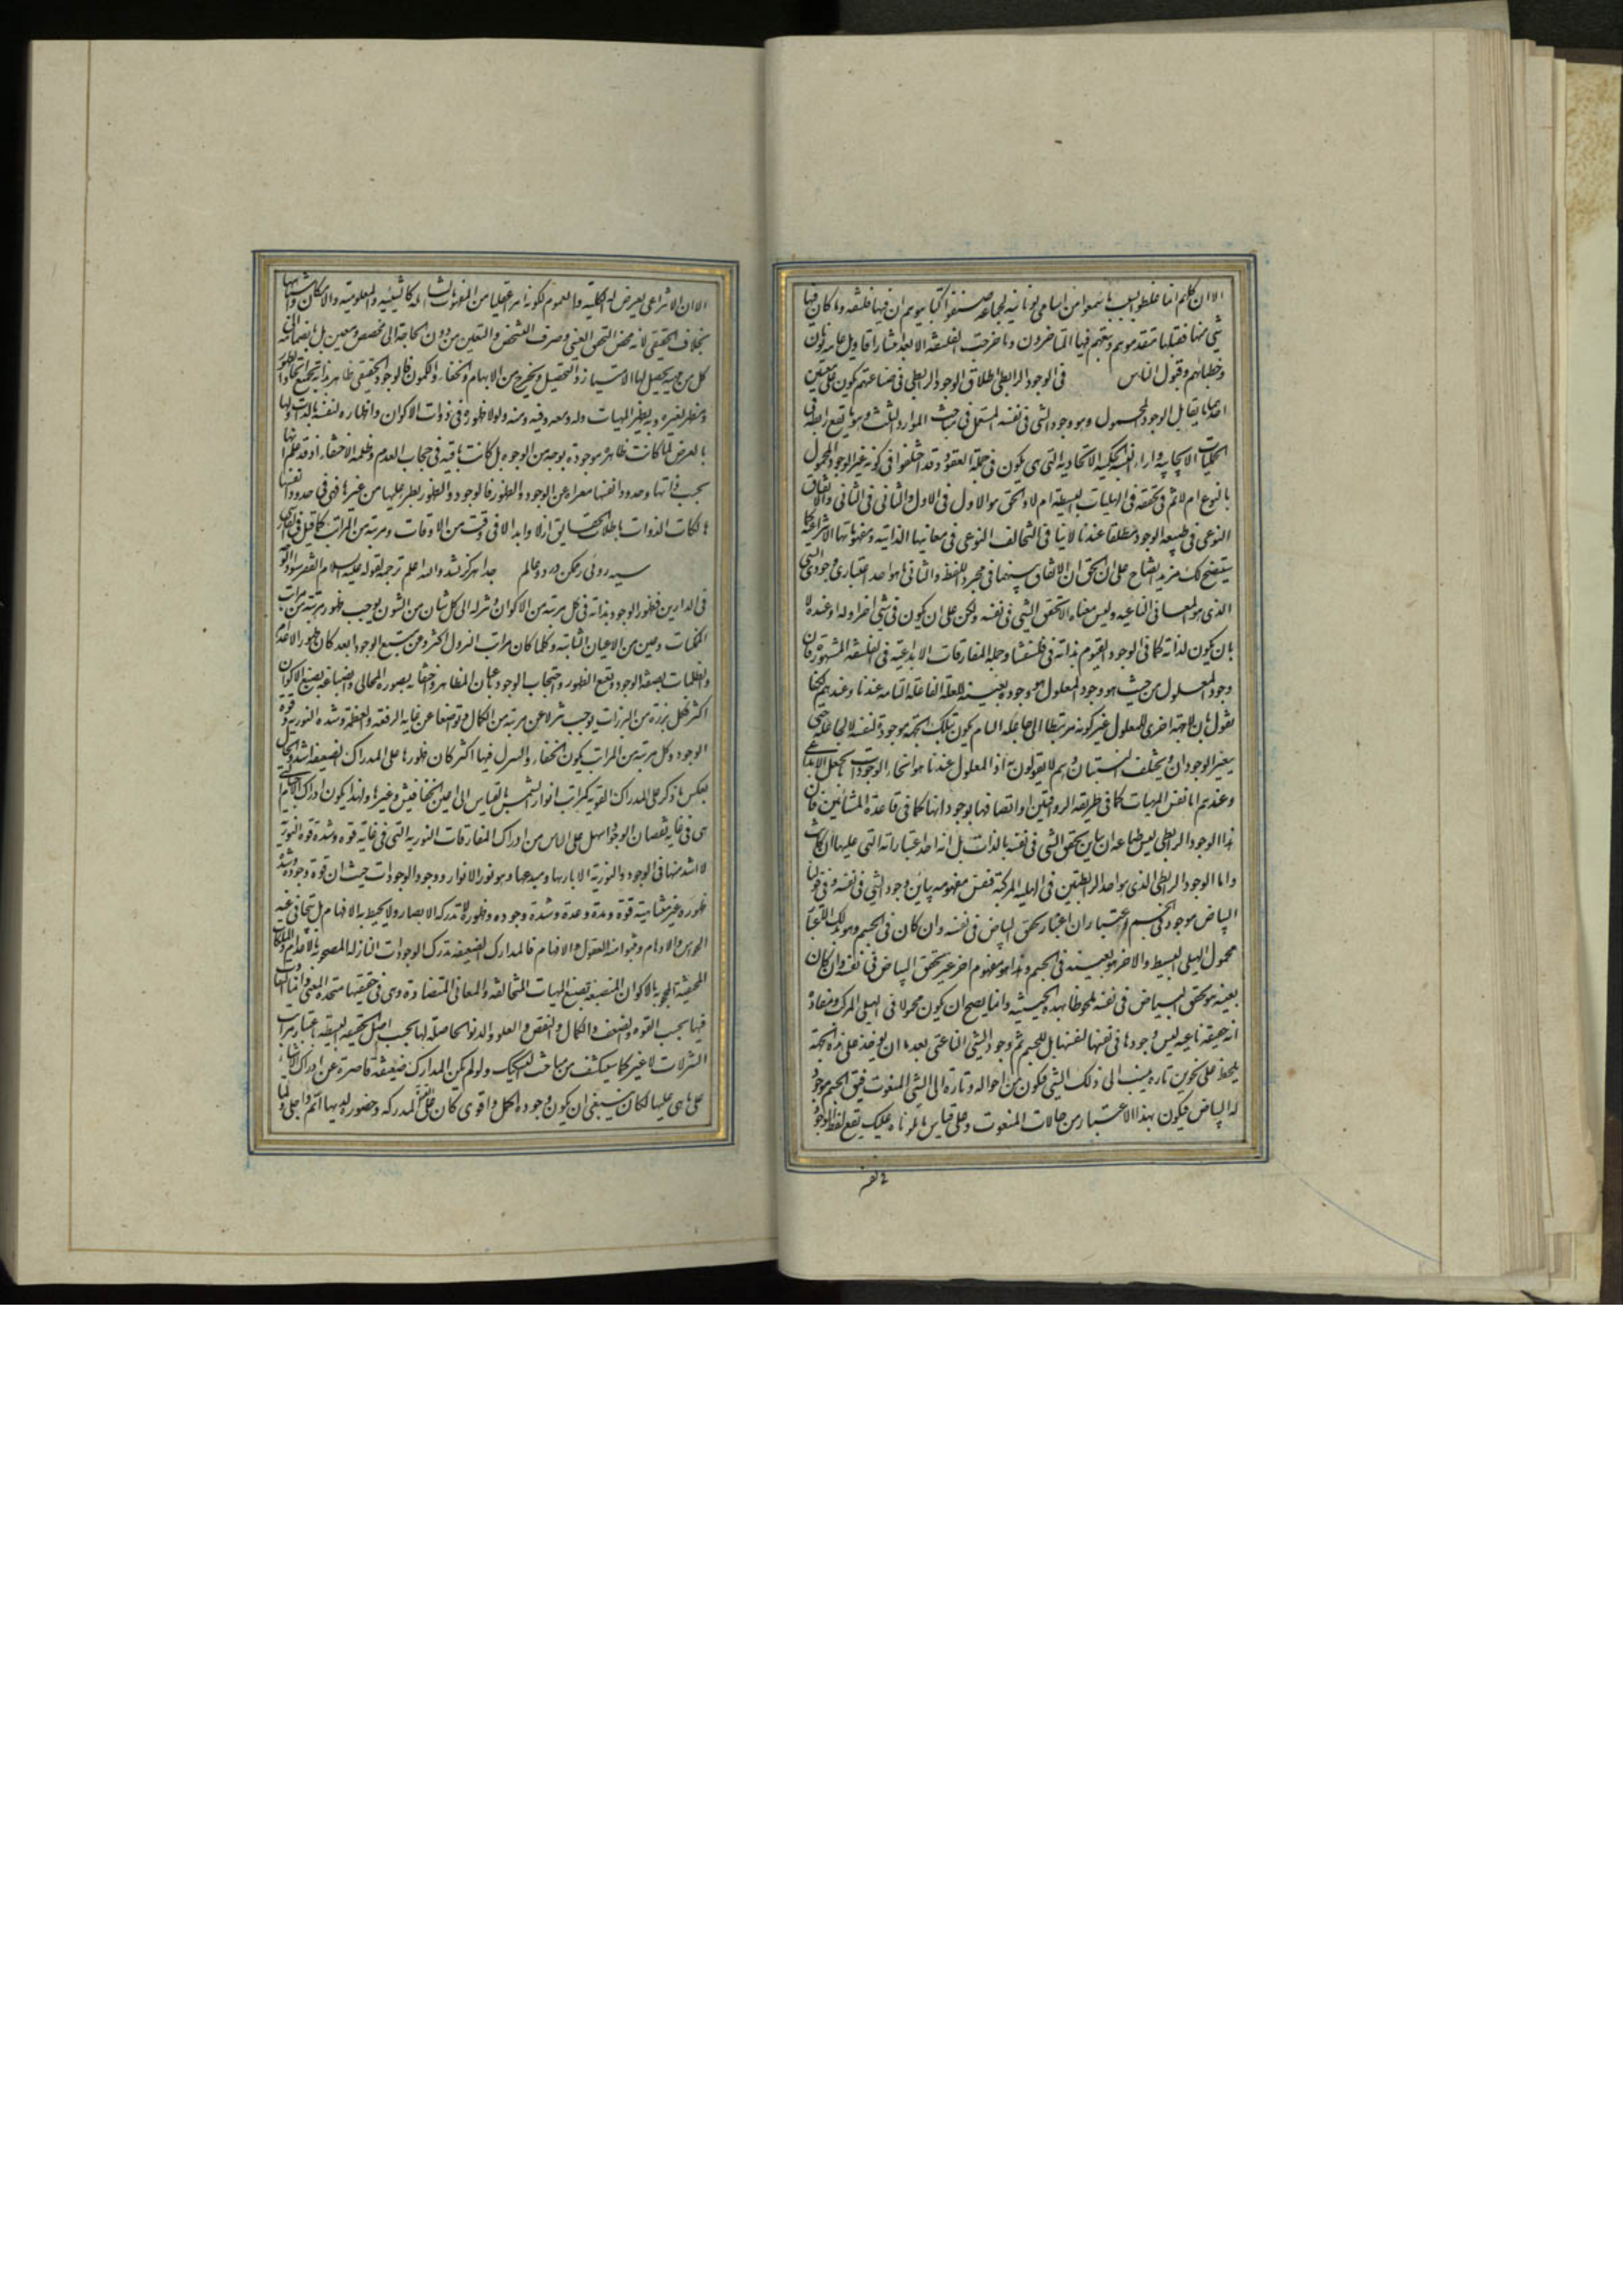 الا ان كلهم انما غلطوا بسبب ما سمعوا من اسامى يونانية لجماعة صنفوا كتبا يتوهم ان فيها فلسفة وما كان فيها
شىء منها فقبلها متقدموهم وتبعهم فيها المتاخرون وما خرجت الفلسفة الا بعد انتشار اقاويل عامة يونان
وخطبائهم وقبول الناس فى الوجود الرابطى اطلاق الوجود الرابطى فى صناعتهم يكون على معنيين
احدهما يقابل الوجود المحمول وهو وجود الشى فى نفسه المستعمل فى مباحث المواد الثلث وهو ما يقع رابطة فى
الحمليات الايجابية وراء النسبة الحكمية الاتحادية التى هى تكون فى جملة العقود وقد اختلفوا فى كونه غير الوجود المحمول
بالنوع ام لا ثم فى تحققه فى الهليات البسيطة ام لا والحق هو الاول فى الاول والثانى فى الثانى والاتفاق
النوعى فى طبيعة الوجود مطلقا عندنا لا ينافى التخالف النوعى فى معانيها الذاتية ومفهوماتها الانتزاعية كما
سيتضح لك مزيد ايضاح على ان الحق ان الاتفاق بينهما فى مجرد اللفظ والثانى ما هو احد اعتبارى وجود الشى
الذى هو من المعانى الناعتية وليس معناه الا تحقق الشى فى نفسه ولكن على ان يكون فى شى اخر او له او عنده لا
بان يكون لذاته كما فى الوجود القيوم بذاته فى فلسفتنا وجملة المفارقات الابداعية فى الفلسفة المشهورة فان
وجود المعلول من حيث هو وجود المعلول هو وجوده بعينه للعلة الفاعلة التامة عندنا وعندهم لكنا
نقول بان لا جهة اخرى للمعلول غير كونه مرتبطا الى جاعله التام يكون بتلك الجهة موجودا لنفسه لا لجاعله حتى
يتغير الوجودان ويختلف النسبتان وهم لا يقولون به اذ المعلول عندنا هو انحاء الوجودات بالجعل الابداعى
وعندهم اما نفس المهيات كما فى طريقة الرواقيين او اتصافها بوجوداتها كما فى قاعدة المشائين فان
هذا الوجود الرابطى ليس طباعه ان يباين تحقق الشى فى نفسه بالذات بل انه احد اعتباراته التى عليها ان كانت
واما الوجود الرابطى الذى هو احد الرابطتين فى الهلية المركبة فنفس مفهومه يباين وجود الشى فى نفسه وفى قولنا
البياض موجود فى الجسم اعتباران اعتبار تحقق البياض فى نفسه وان كان فى الجسم وهو بذلك الاعتبار
محمول الهلى البسيط والاخر هو بعينه فى الجسم وهذا هو مفهوم اخر غير تحقق البياض فى نفسه وان كان
بعينه هو تحقق البياض فى نفسه ملحوظا بهذه الحيثية وانما يصح ان يكون محمولا فى الهلى المركب ومفاده
انه حقيقة ناعتية ليس وجودها فى نفسها لنفسها بل للجسم ثم وجود الشى الناعتى بعد ما ان يوخذ على هذه الجهة
يلحظ على نحوين تارة ينسب الى ذلك الشى فيكون من احواله وتارة الى الشى المنعوت فيق الجسم موجود
له البياض فيكون بهذا الاعتبار من حالات المنعوت وعلى قياس ما تلوناه عليك يقع لفظ الوجود
الا ان الانتزاعى يعرض له الكلية والعموم لكونه امرا عقليا من المفهومات الشاملة كالشيئية والمعلومية والامكان واشباهها
بخلاف الحقيقى لانه محض التحقق العينى وصرف التشخص والتعين من دون الحاجة الى مخصص ومعين بل بانضمامه الى
كل مهية يحصل لها الامتياز والتحصيل ويخرج من الابهام والخفاء والكمون فالوجود الحقيقى ظاهر بذاته بجميع انحاء الظهور
ومظهر لغيره وبه يظهر المهيات وله ومعه وفيه ومنه ولولا ظهوره فى ذوات الاكوان واظهاره لنفسه بالذات ولها
بالعرض لما كانت ظاهرة موجودة بوجه من الوجوه بل كانت باقية فى حجاب العدم وظلمة الاختفاء اذ قد علم انها
بحسب ذاتها وحدود انفسها معراة عن الوجود والظهور فالوجود والظهور يطرء عليها من غيرها فهى فى حدود انفسها
هالكات الذوات باطلات الحقايق ازلا وابدا لا فى وقت من الاوقات ومرتبة من المراتب كما قيل فى الفارسى
سيه روئى ز ممكن در دو عالم جدا هركز نشد والله اعلم ترجمة لقوله عليه السلام الفقر سواد الوجه
فى الدارين فظهور الوجود بذاته فى كل مرتبة من الاكوان وتنزله الى كل شان من الشون يوجب ظهور مرتبة من مراتب
الممكنات وعين من الاعيان الثابتة وكلما كان مراتب النزول اكثر وعن منبع الوجود ابعد كان ظهور الاعدام
والظلمات بصفة الوجود ونعت الظهور واحتجاب الوجود باعيان المظاهر واختفائه بصور المجالى وانصباغه بصبغ الاكوان
اكثر فكل برزة من البرزات يوجب تنزلا عن مرتبة من الكمال وتواضعا عن غاية الرفعة والعظمة وشدة النورية وقوة
الوجود وكل مرتبة من المراتب يكون الخفاء والتنزل فيها اكثر كان ظهورها على المدارك الضعيفة اشد والحال
بعكس ما ذكر على المدارك القوية كمراتب انوار الشمس بالقياس الى اعين الخفافيش وغيرها ولهذا يكون ادراك الاجسام التى
هى فى غاية نقصان الوجود اسهل على الناس من ادراك المفارقات النورية التى فى غاية قوة وشدة قوة النورية
لا اشد منها فى الوجود والنورية الا باريها ومبدعها وهو نور الانوار ووجود الوجودات حيث ان قوة وجوده وشدة
ظهوره غير متناهية قوة ومدة وعدة وشدة وجوده وظهوره لا تدركه الابصار ولا يحيط به الافهام بل تتجافى عنه
الحواس والاوهام وتنبو منه العقول والافهام فالمدارك الضعيفة تدرك الوجودات النازلة المصحوبة بالاعدام والملكات
المختفية المحجوبة بالاكوان المنصبغة بصبغ المهيات المتخالفة والمعانى المتضادة وهى فى حقيقتها متحدة المعنى وانما التفاوت
فيها بحسب القوة والضعف والكمال والنقص والعلو والدنو الحاصلة لها بحسب اصل الحقيقة البسيطة باعتبار مراتب
التنزلات لا غير كما سينكشف من مباحث التشكيك ولو لم يكن المدارك ضعيفة قاصرة عن ادراك الاشياء
على ما هى عليها لكان ينبغى ان يكون ما وجوده اكمل واقوى كان ظهوره على القوة المدركة وحضوره لديها اتم واجلى ولما